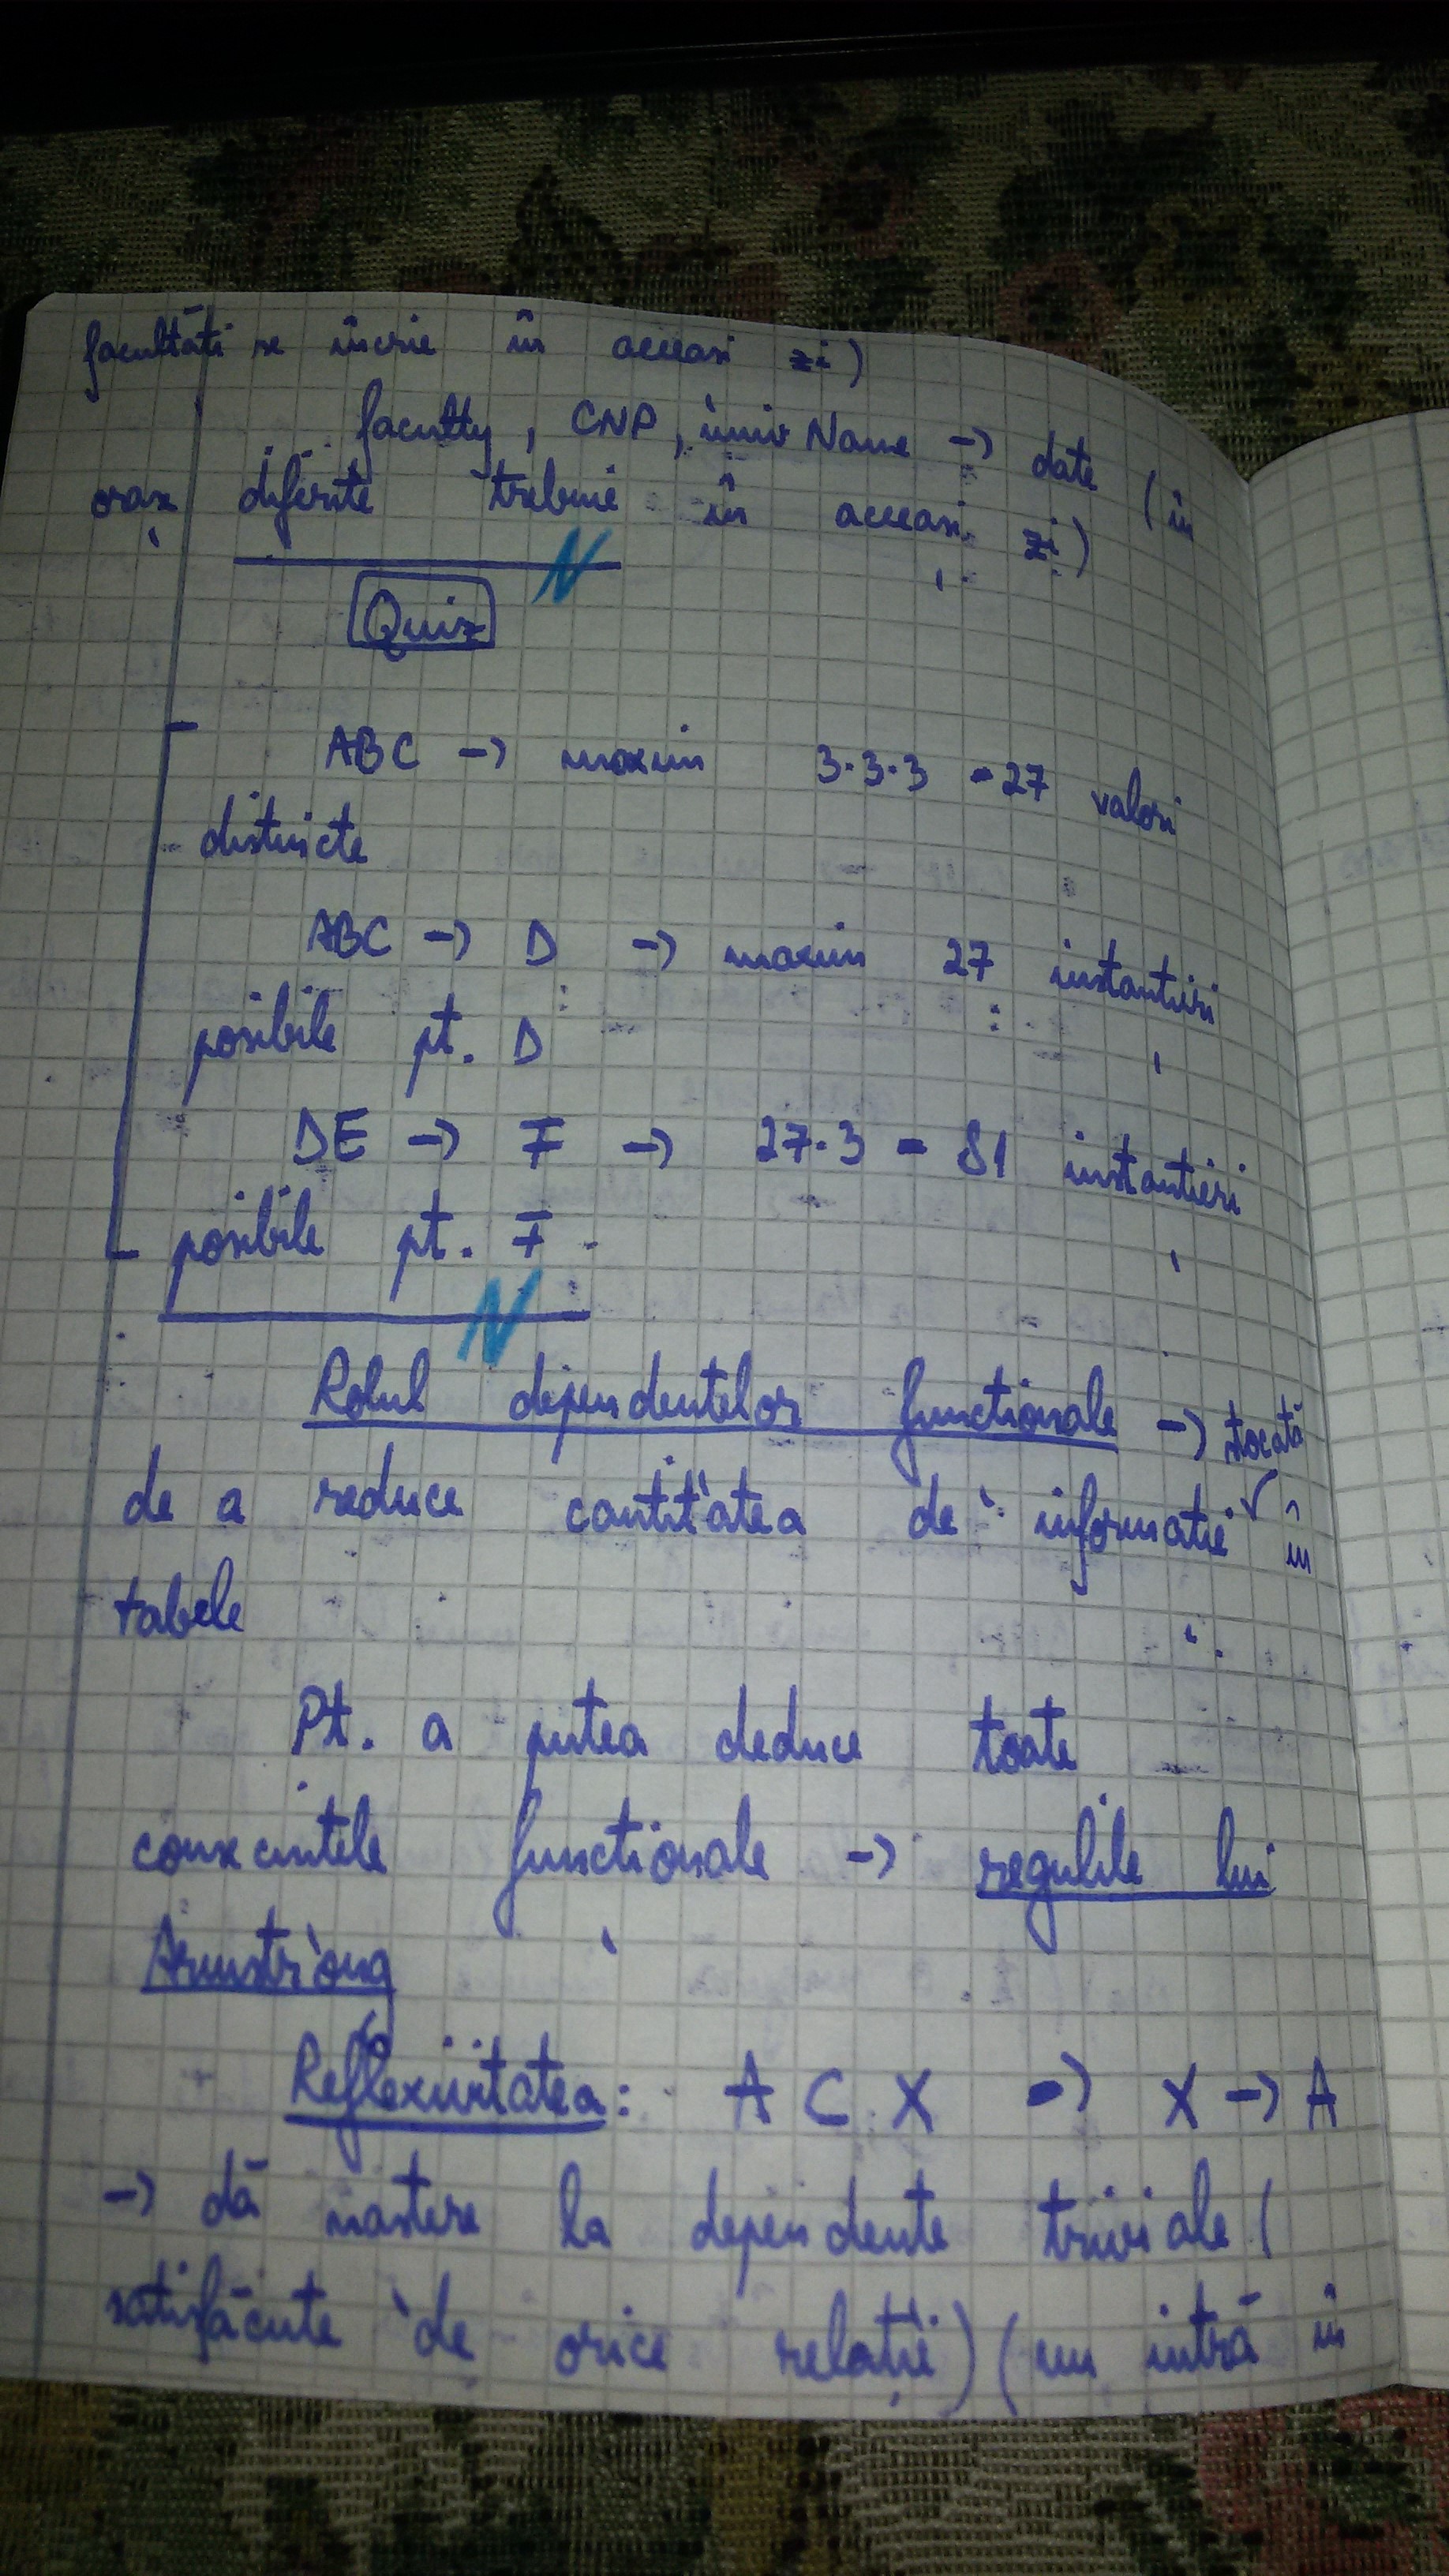 facultăti se incrie în aceeasi zi)
faculty, CNP, univ Name -> date (în
orașe diferite trebuie în aceeași zi)
N
Quiz
ABC -> maxim 3·3·3 = 27 valori
distincte
ABC -> D -> maxim 27 instantieri
posibile pt. D
DE -> F -> 27·3 = 81 instanțieri
posibile pt. F.
N
Rolul dependentelor functionale -> stocată
de a reduce cantitatea de informatie √ în
tabele
Pt. a putea deduce toate
consecintele functionale -> regulile lui
Armstrong
Reflexivitatea: A ⊂ X => X -> A
-> dă nastere la dependente triviale (
satisfăcute de orice relație) (nu intră în